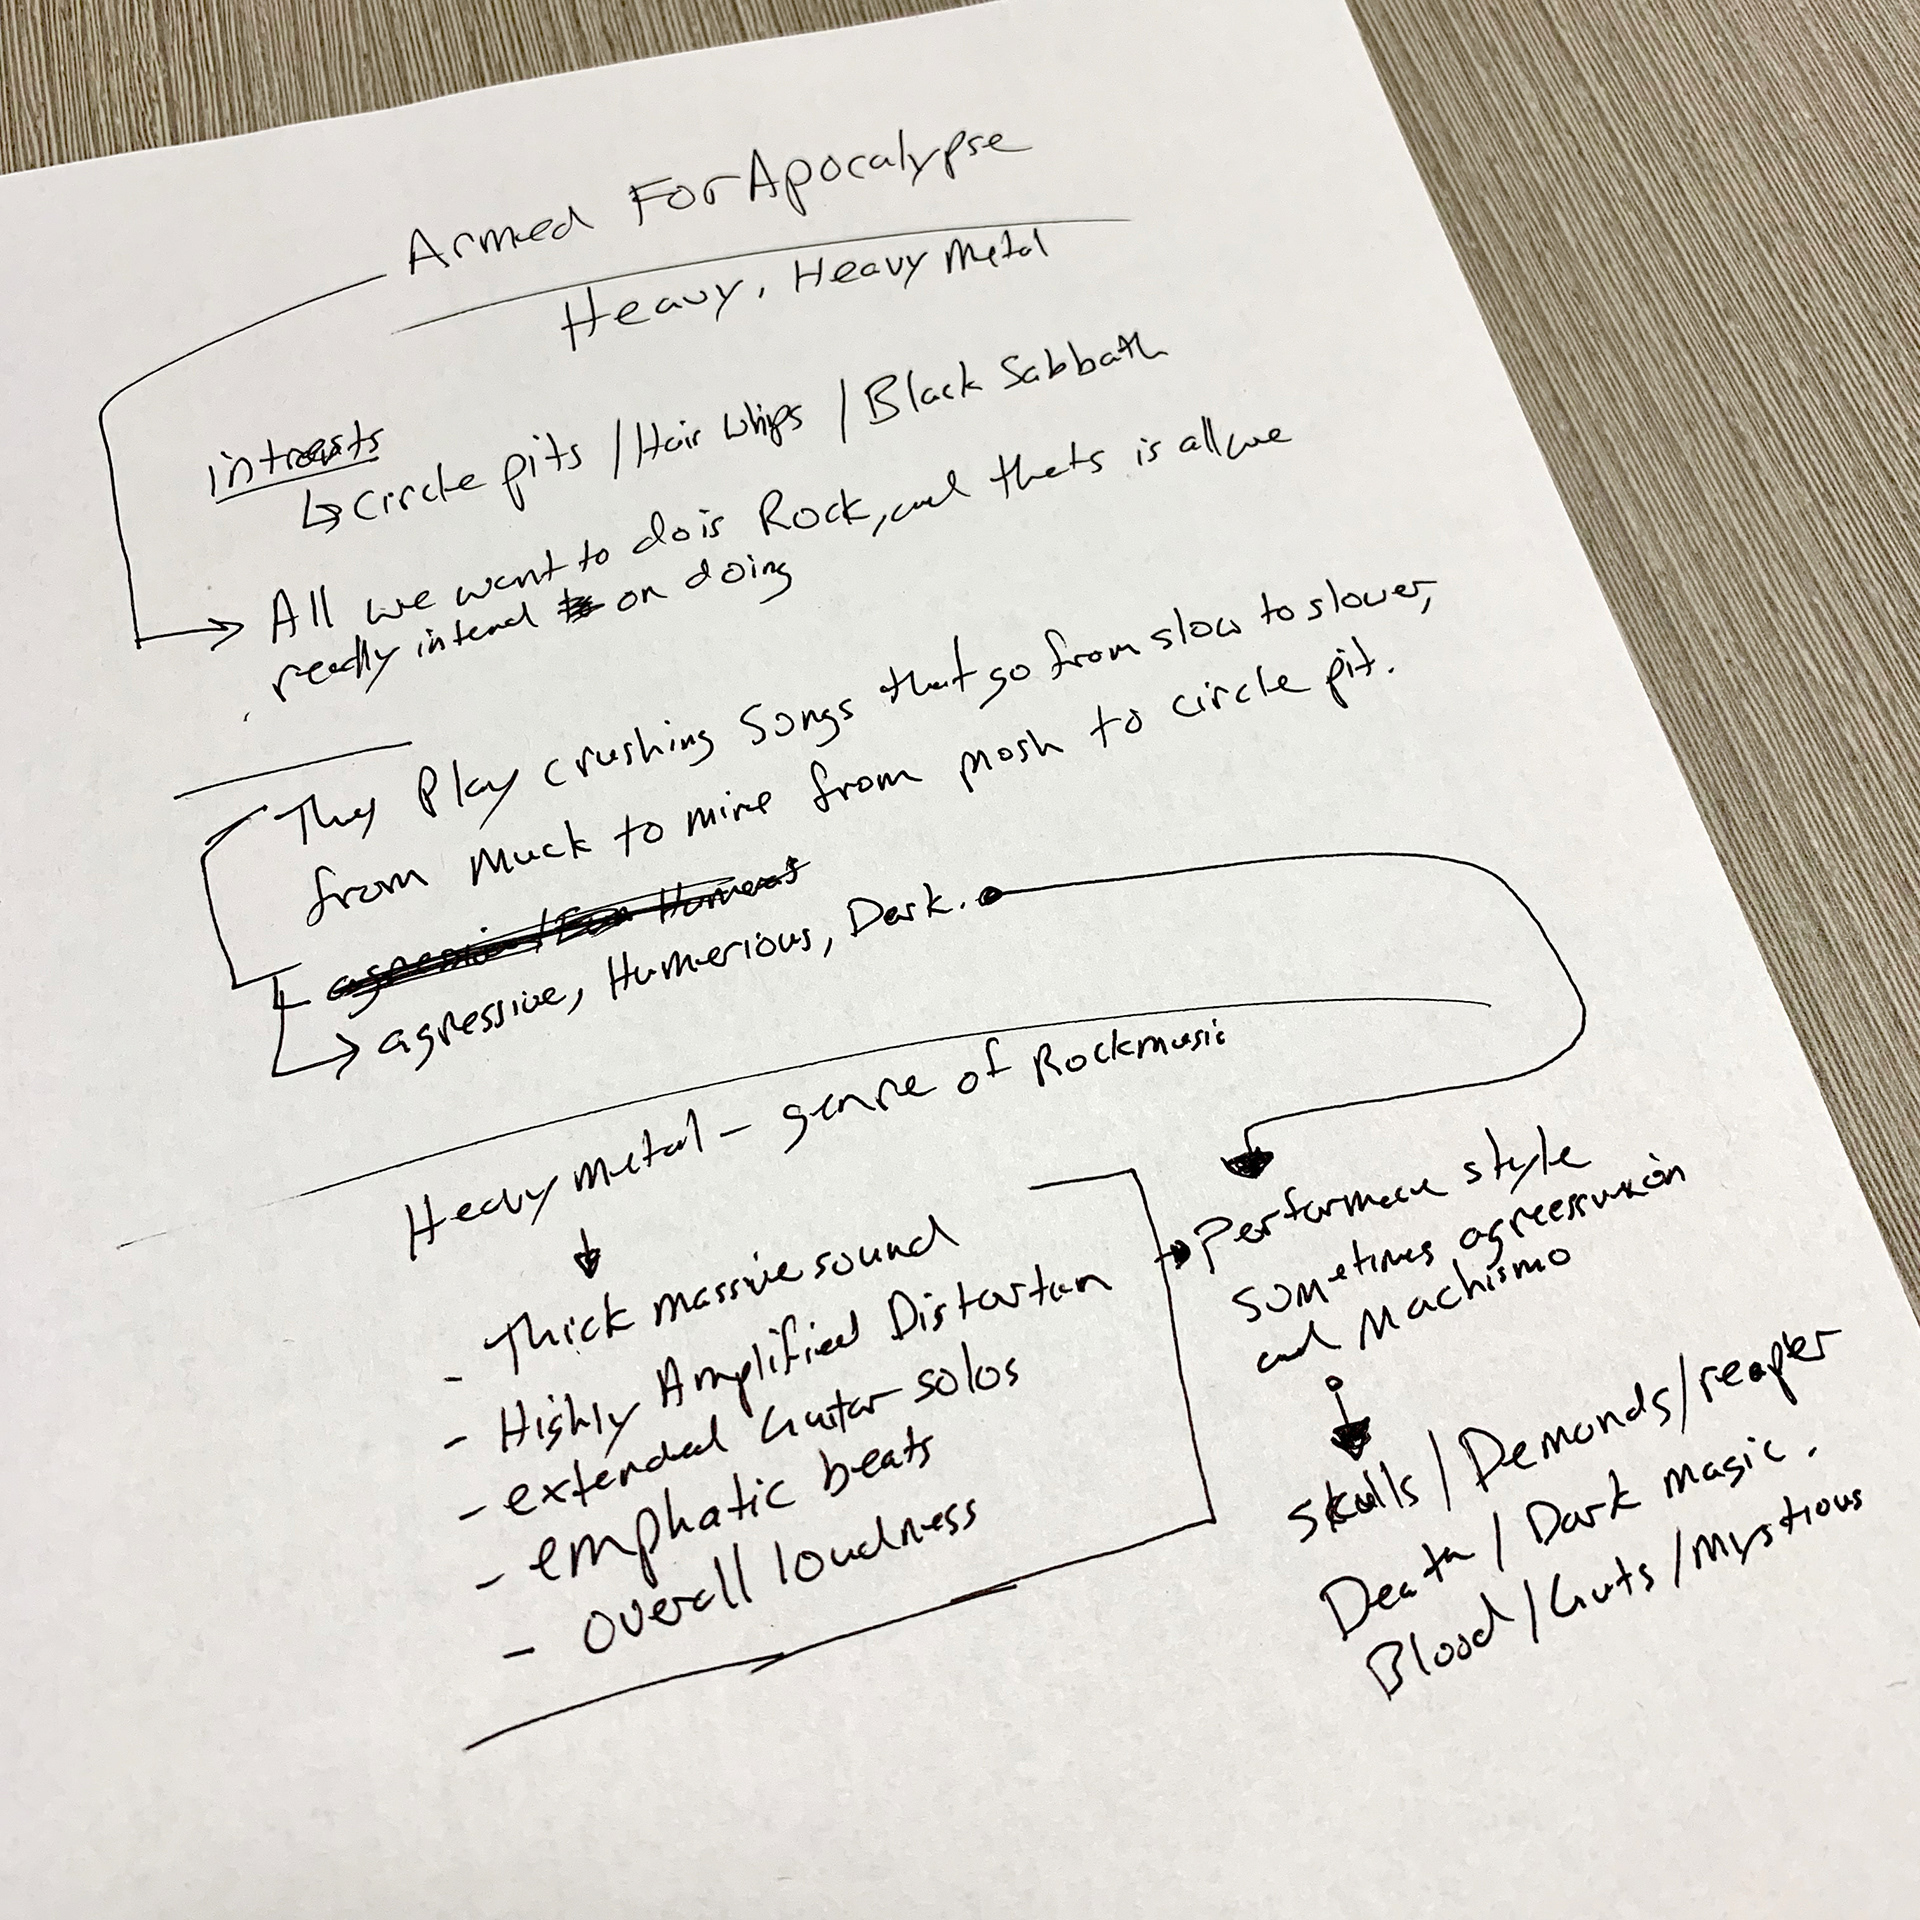 Armed For Apocalypse
Heavy, Heavy Metal
intrests
↳ circle pits / Hair whips / Black Sabbath
→ All we want to do is Rock, and thats is all we
really intend on doing
They Play crushing Songs that go from slow to slower,
from Muck to mire from mosh to circle pit.
→ agressive, Humerious, Dark.
Heavy metal – genre of Rock music
- Thick massive sound
- Highly Amplified Distortion
- extended Guitar solos
- emphatic beats
- overall loudness
Performance style
sometimes
and Machismo
Skulls / Demonds / reaper
Death / Dark magic.
Blood / Guts / Mystious